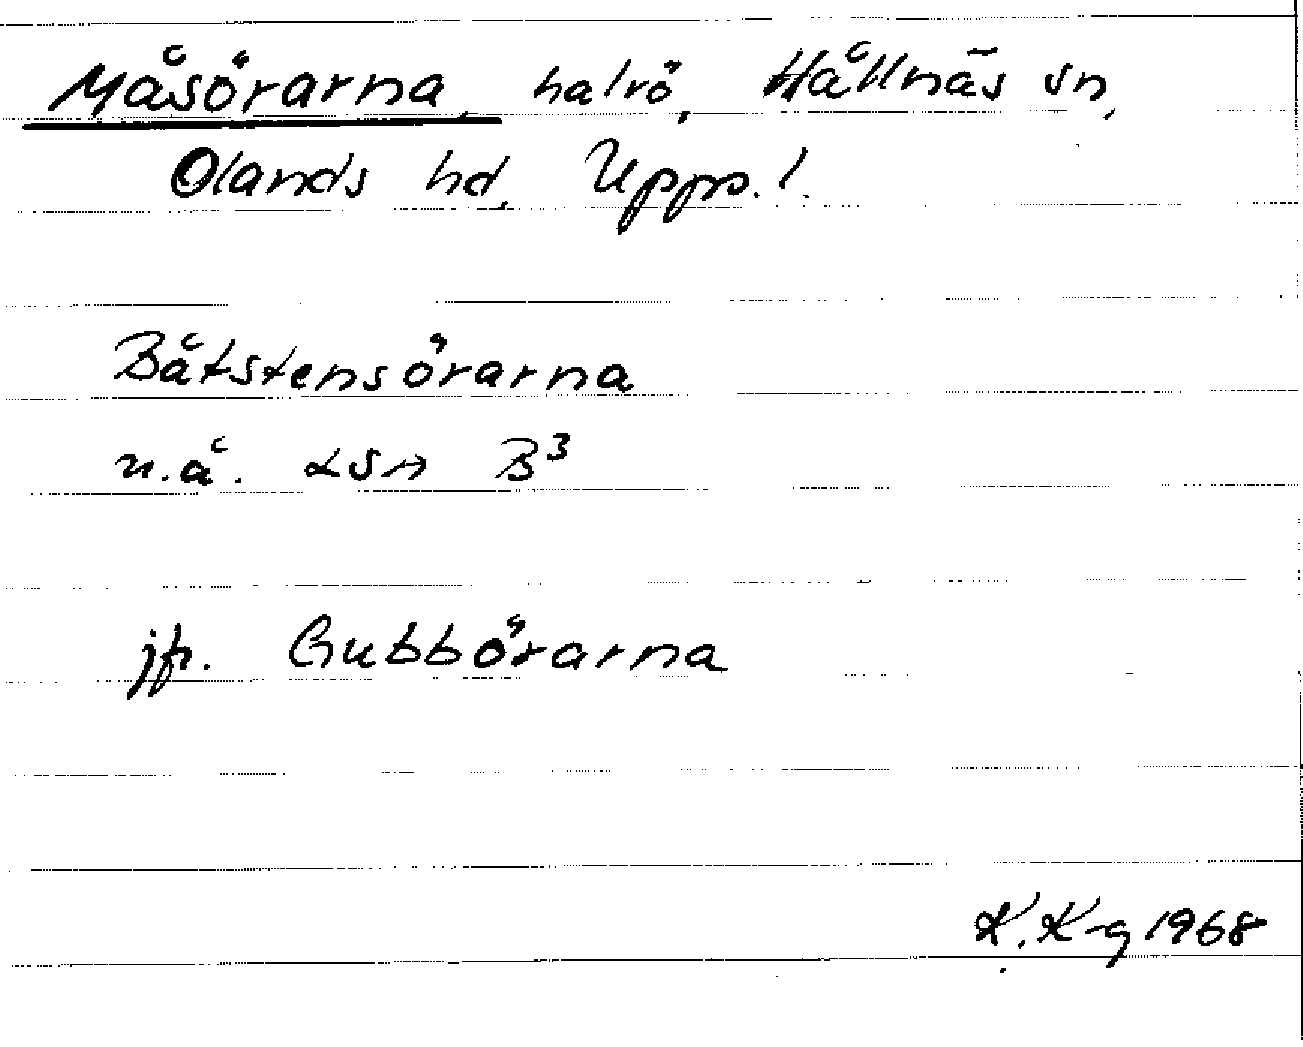 Måsörarna, halvö, Hållnäs sn,
Olands hd, Upps. l.
Båtstensörarna
n.å. LSA B³
jfr. Gubbörarna
K. K-g 1968